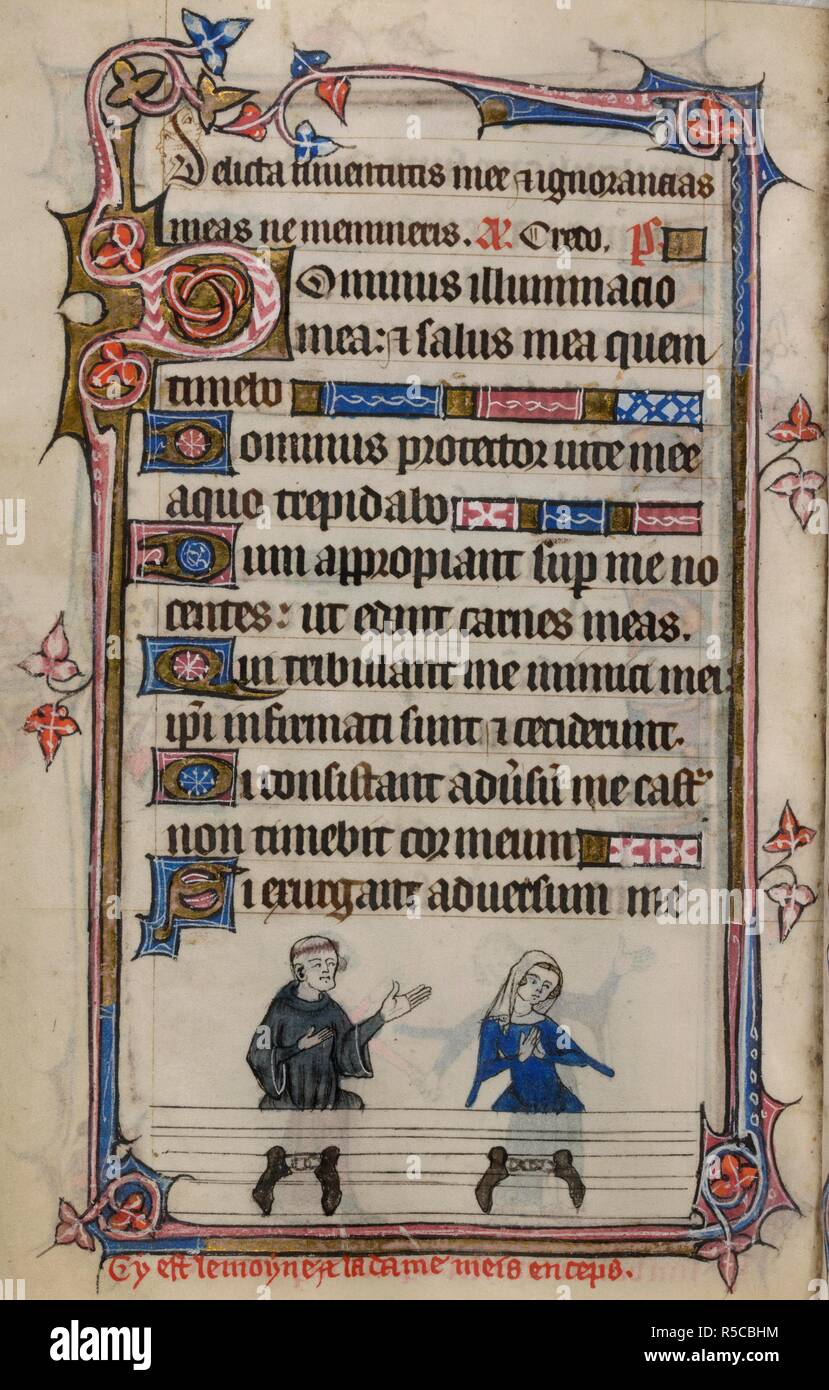 Delicta iuuentutis mee ⁊ ignorancias
meas ne memineris. A. Credo. ps.
Dominus illuminacio
mea: ⁊ salus mea quem
timebo
Dominus protector uite mee
a quo trepidabo
Dum appropiant sup me no
centes: ut edant carnes meas.
Qui tribulant me inimici mei:
ipi infirmati sunt ⁊ ceciderunt.
Si consistant adusu me cast
non timebit cor meum
Si exurgant aduersum me
Cy est le moyne ⁊ la dame meis en ceps.
alamy
alamy
Image ID: R5CBHM
www.alamy.com